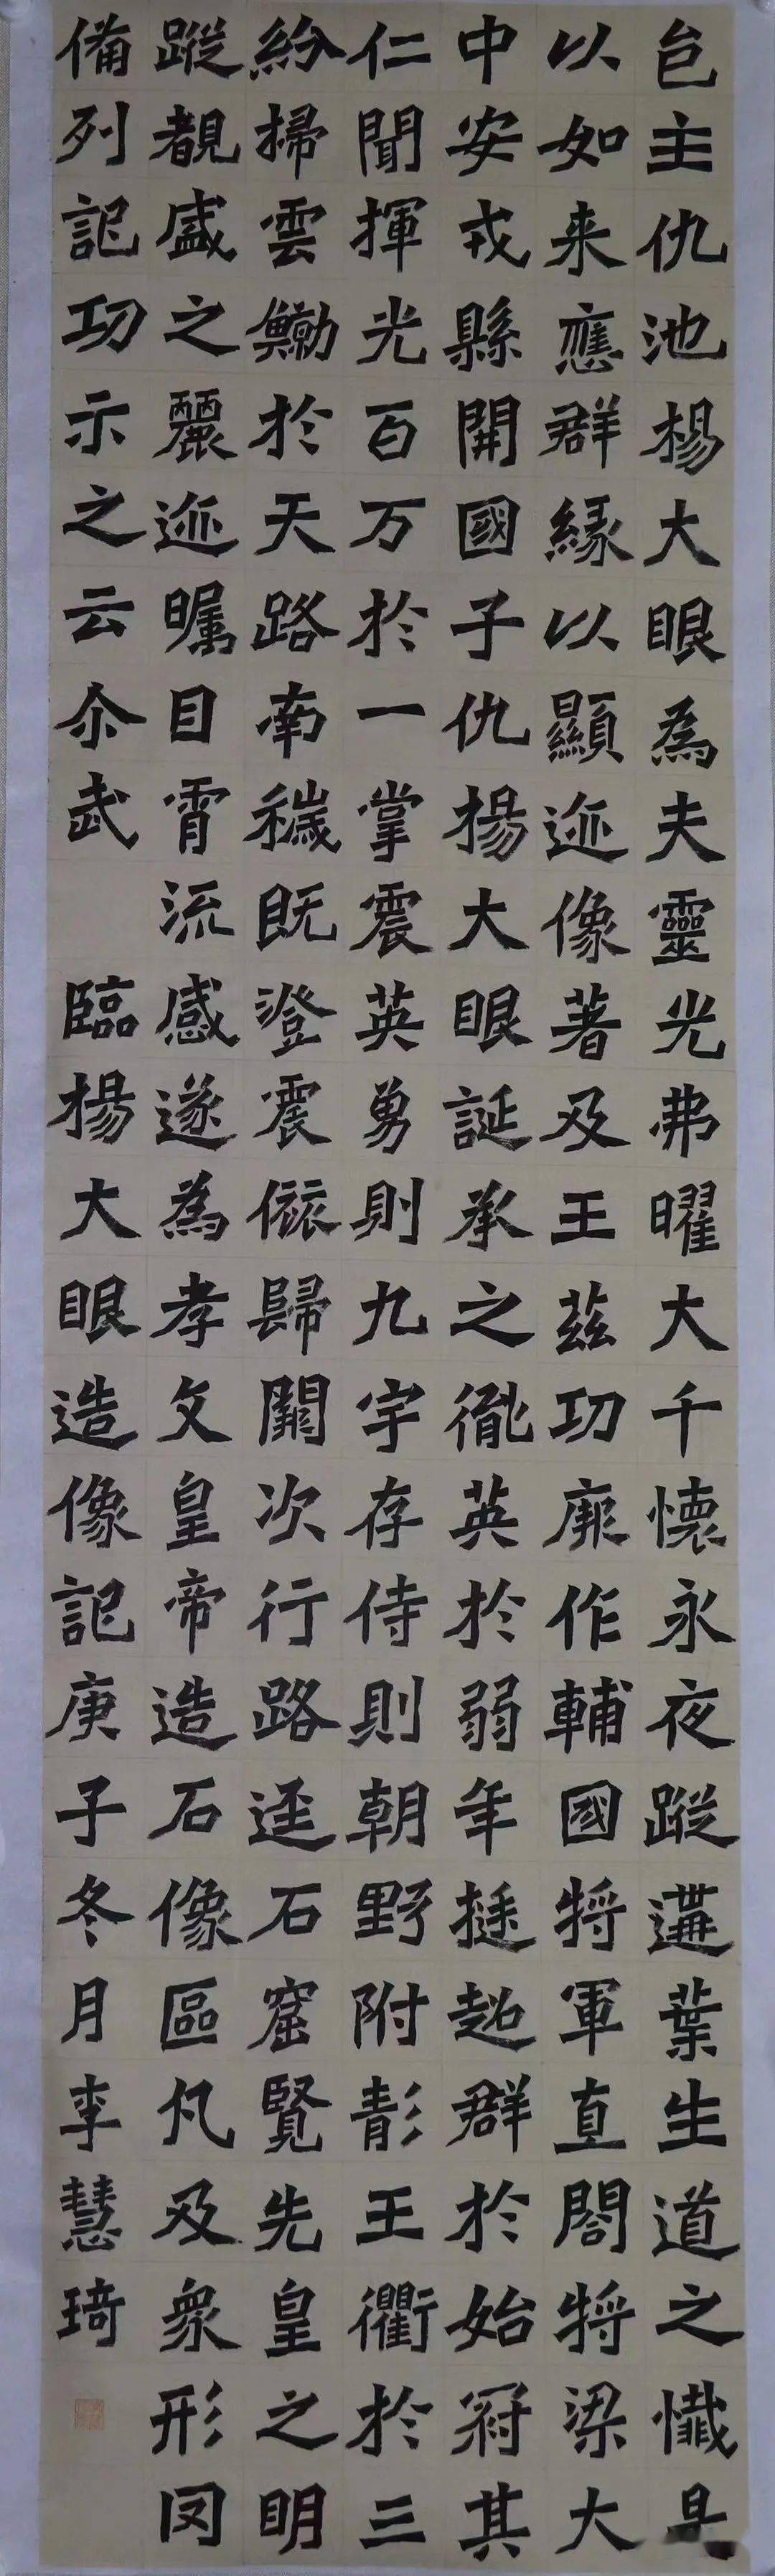 邑主仇池楊大眼為夫靈光弗曜大千懷永夜蹤遘葉生道之懺是
以如来應群緣以顯迹像著及王茲功厥作輔國将軍直閤将梁大
中安戎縣開國子仇楊大眼誕承之胤英於弱年挺超群於始冠其
仁聞揮光百万於一掌震英勇則九宇存侍則朝野附彰王衢於三
紛掃雲鯨於天路南穢既澄震依歸闕次行路逕石窟覽先皇之明
蹤覩盛之麗迹矚目霄流感遂為孝文皇帝造石像區凡及衆形罔
備列記功示之云尒武 臨楊大眼造像記庚子冬月李慧琦